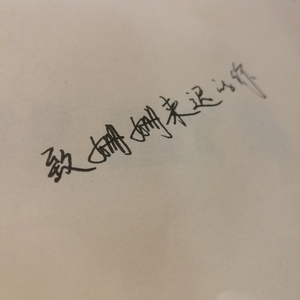 致姗姗来迟的你